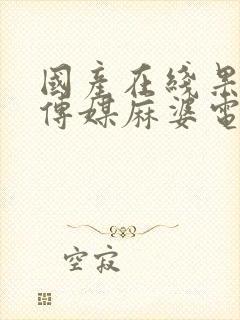 國產在线果
傳媒麻婆電
空寂